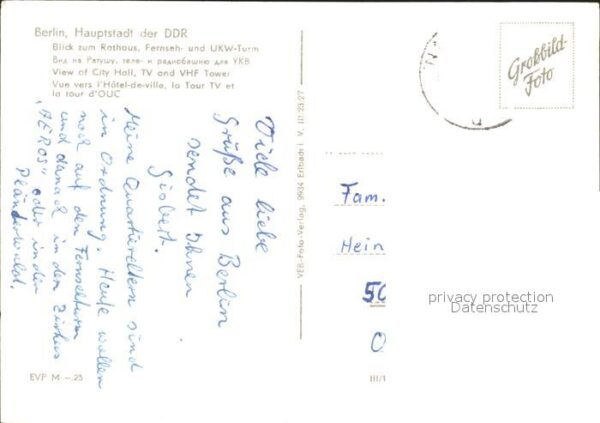 Berlin, Hauptstadt der DDR
Blick zum Rathaus, Fernseh- und UKW-Turm
Вид на Ратушу, теле- и радиобашню для УКВ
View of City Hall, TV and VHF Tower
Vue vers l'Hôtel-de-ville, la Tour TV et
la tour d'OUC
Viele liebe
Grüße aus Berlin
sendet Ihnen
Gisbert.
Meine Quartiereltern sind
in Ordnung. Heute wollen
noch auf den Fernsehturm
und danach in den Zirkus
"AEROS" oder in den
Plänterwald.
EVP M –.25
VEB-Foto-Verlag, 9934 Erlbach i. V.
Großbild-
Foto
Fam.
Hein
50
O
privacy protection
Datenschutz